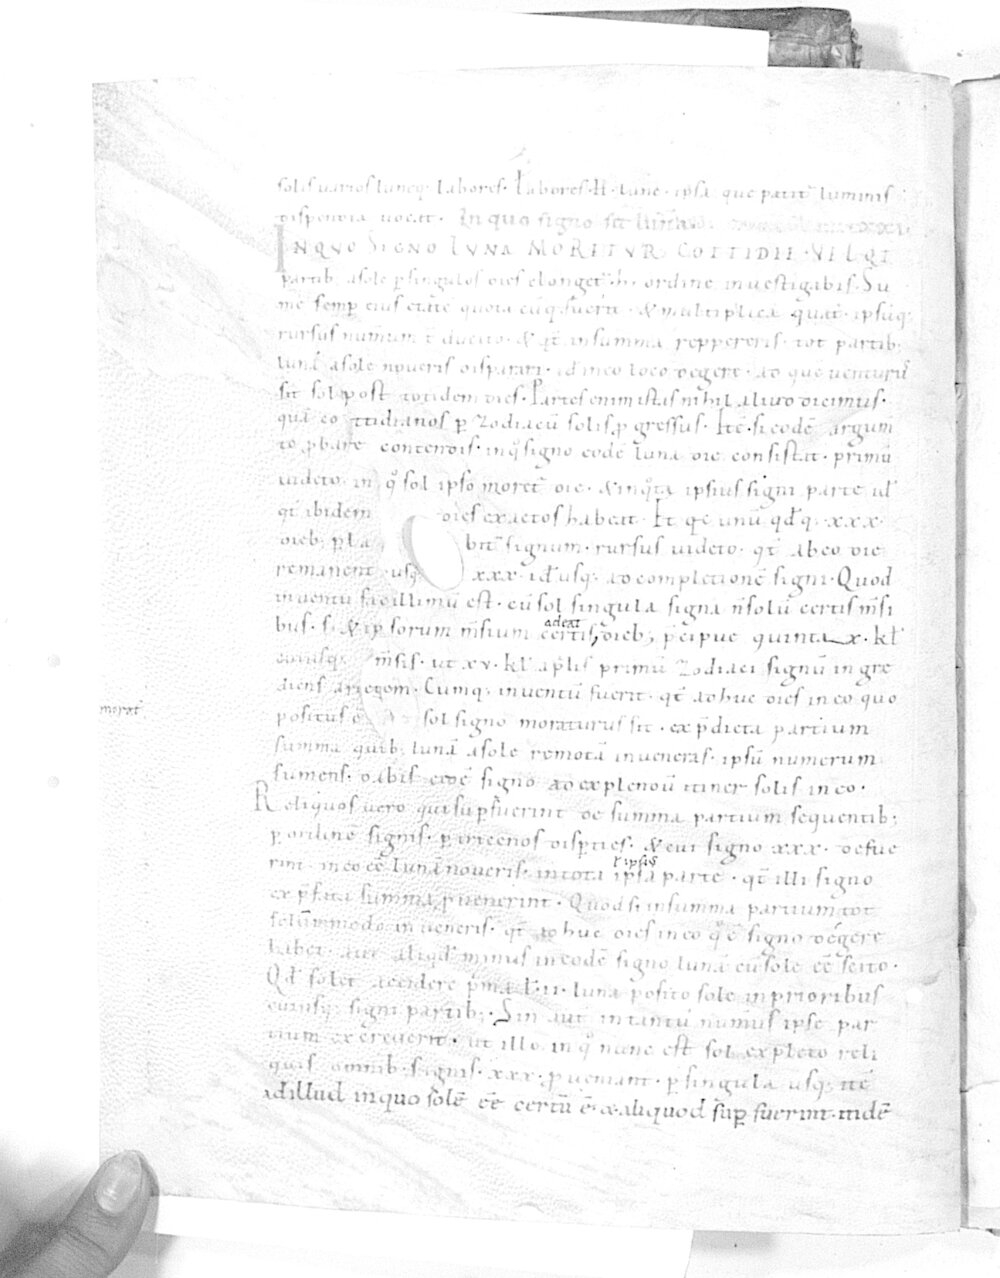 solis uarios luneq; labores. Labores .n. lune. ipsa que patit̄ luminis
dispendia uocat. In quo signo sit luna
IN QVO SIGNO LVNA MORETVR COTTIDIE. VEL QT
partib; a sole p̄ singulos dies elonget̄. h ordine inuestigabis. Su
me semp eius etatē quota cūq; fuerit. & multiplica quat̄. ipsūq;
rursus numerum ī ducito. & qt̄ in summa reppereris. tot partib;
lunā a sole noueris disparari. id in eo loco degere. ad quē uenturus
sit sol post totidem dies. Partes enim istas nihil aliud dicimus.
quā co ttidianos p̄ zodiacū solis p gressus. Itē. si eodē argum̄
to p bare contendis. in q̊ signo eodē luna die consistat. primū
uideto. in q̊ sol ipso moret̄ die. & in q̊ta ipsius signi parte ul̄
qt̄ ibidem dies exactos habeat. Et qe unū qd̄q; xxx.
dieb; p̄ la bit̄ signum. rursus uideto. qt̄ ab eo die
remanent. usq; xxx. id ē usq; ad completionē signi. Quod
inuentū facillimū est. cū sol singula signa n̄ solū certis m̄si
bus. s; & ipsorum m̄sium certis adeat dieb; p̄cipue quinta x. kl̄
cuiusq; m̄sis. ut xv. kl̄ ap̄lis primū zodiaci signū ingre
diens arietem. Cumq; inuentū fuerit. qt̄ adhuc dies in eo quo
morat̄
positus ē sol signo moraturus sit. ex p̄dicta partium
summa quib; lunā a sole remotā inueneras. ipsū numerum
sumens. dabis eidē signo ad explendū itiner solis in eo.
Reliquos uero qui supfuerint de summa partium sequentib;
p ordinē signis. p tricenos disp̄ties. & cui signo xxx. defue
rint. in eo eē lunā noueris. in tota ipsa ł ipsi parte. qt̄ illi signo
ex p̄fata summa p uenerint. Quod si in summa partium tot
solūmmodo inueneris. qt̄ adhuc dies in eo q̊ ē signo degere
habet. aut aliqd̄ minus in eodē signo lunā cū sole eē scito.
Qd̄ solet accidere p̄ma ł .ii. luna posito sole in prioribus
cuiusq; signi partib;. Sin aut̄ in tantū num̄us ipse par
tium excreuerit. ut illo. in q̊ nunc est sol expleto reli
quis omnib; signis. xxx. p ueniant. p̄ singula usq; itē
ad illud in quo solē eē certū ē. & aliquod sup fuerint. itidē